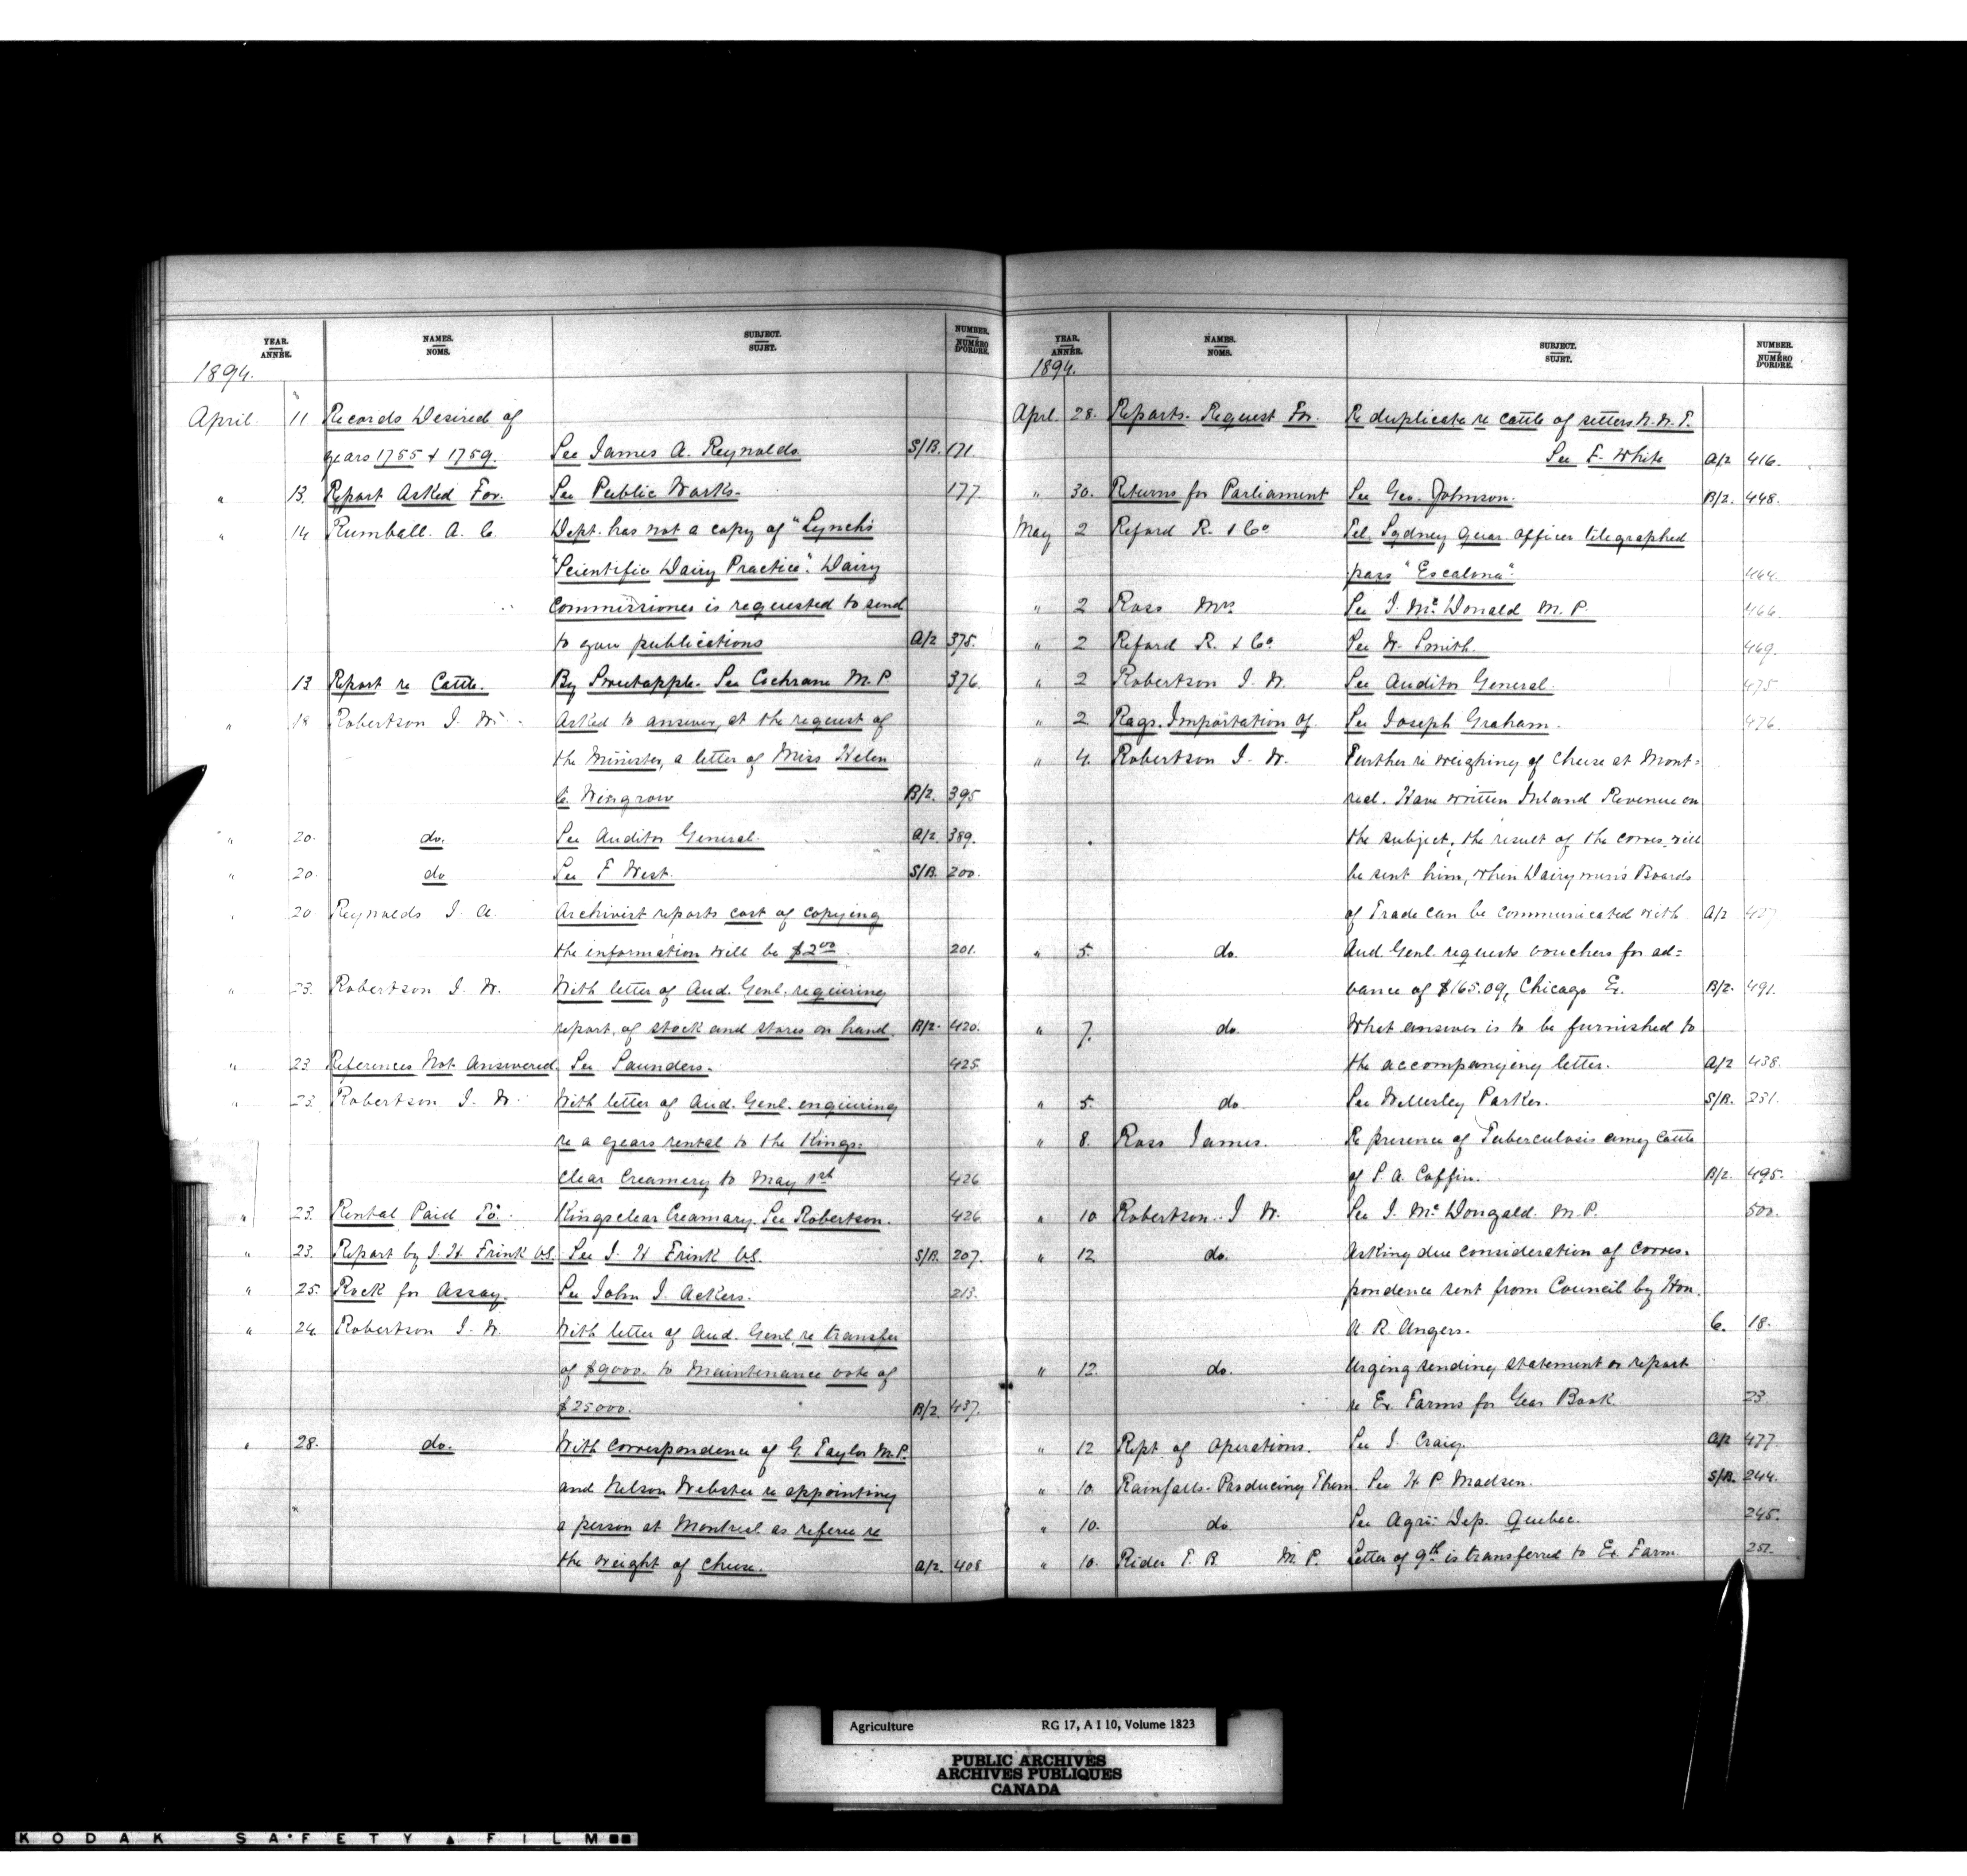 YEAR. ANNÉE. NAMES. NOMS. SUBJECT. SUJET. NUMBER. NUMÉRO D'ORDRE.
1894.
April 11 Records Desired of
years 1755 & 1759. See James A. Reynolds S/B. 171
" 13. Report Asked For. See Public Works. 177
" 14 Rumball. A. C. Dept. has not a copy of "Lynch's
"Scientific Dairy Practice". Dairy
Commissioner is requested to send
to you publications A/2 375.
13 Report re Cattle. By Sweetapple. See Cochrane M.P. 376.
" 18 Robertson J. W. Asked to answer, at the request of
the Minister, a letter of Miss Helen
C. Wingrow B/2. 395
" 20. do. See Auditor General. A/2 389.
" 20. do See F West. S/B. 200.
" 20 Reynolds J. A. Archivist reports cost of copying
the information will be $2.00 201.
" 23. Robertson J. W. With letter of Aud. Genl. requiring
report, of stock and stores on hand. B/2. 420.
" 23. References Not Answered. See Saunders. 425
" 23. Robertson J. W. With letter of Aud. Genl. enquiring
re a years rental to the Kings-
clear Creamery to May 1st 426
" 23. Rental Paid To. Kingsclear Creamary. See Robertson. 426
" 23. Report by J. H. Frink V.S. See J. H Frink V.S. S/B. 207.
" 25. Rock for Assay. See John J. Ackers. 213.
" 24. Robertson J. W. With letter of Aud. Genl. re transfer
of $9000. to Maintenance vote of
$25000. B/2. 437.
" 28. do. With correspondence of G. Taylor M.P.
and Nelson Webster re appointing
a person at Montreal as referee re
the weight of cheese. A/2. 408
YEAR. ANNÉE. NAMES. NOMS. SUBJECT. SUJET. NUMBER. NUMÉRO D'ORDRE.
1894.
Aprl. 28. Reports. Request For. Re duplicate re cattle of setters N.W.T.
See F. White A/2 416.
" 30. Returns for Parliament See Geo. Johnson. B/2. 448.
May 2 Reford R. & Co. Tel. Sydney Quar. officer telegraphed
pass "Escalona". 464.
" 2 Ross Mrs. See J. McDonald M.P. 466
" 2 Reford R. & Co. See W. Smith. 469.
" 2 Robertson J. W. See Auditor General. 475
" 2. Rags. Importation of. See Joseph Graham. 476
" 4. Robertson J. W. Further re weighing of Cheese at Mont-
real. Have written Inland Revenue on
the subject, the result of the corres. will
be sent him, when Dairymen's Boards
of Trade can be communicated with A/2
" 5. do. Aud. Genl. requests vouchers for ad-
vance of $165.09, Chicago Ex. B/2. 491.
" 7. do. What answer is to be furnished to
the accompanying letter. A/2 438.
" 5. do. See Wellesley Parker. S/B. 231.
" 8. Ross James. Re presence of Tuberculosis among Cattle
of P. A. Coffin. B/2. 495.
" 10 Robertson. J W. See J. McDougald. M.P. 500.
" 12 do. Asking due consideration of corres-
pondence sent from Council by Hon.
A. R. Angers. C. 18.
" 12. do. Urging sending statement or report
re Ex. Farms for Year Book 23.
" 12 Rept of Operations. See J. Craig. A/2 477.
" 10. Rainfalls-Producing Them. See H P. Madsen. S/B. 244.
" 10. do. See Agri: Dep. Quebec. 245.
" 10. Rider T. B M. P. Letter of 9th is transferred to Ex. Farm. 251.
Agriculture RG 17, A I 10, Volume 1823
PUBLIC ARCHIVES
ARCHIVES PUBLIQUES
CANADA
KODAK SAFETY FILM